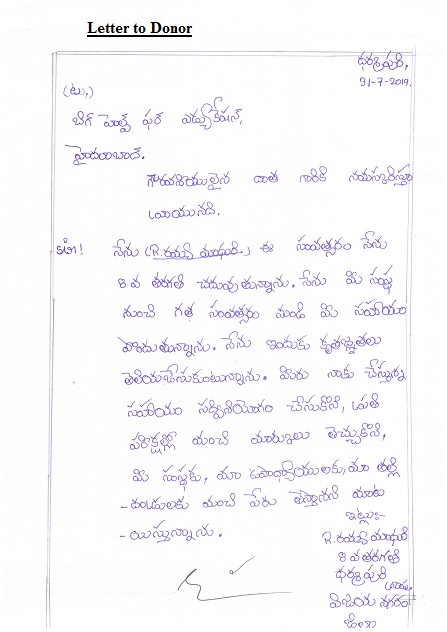 Letter to Donor
ధర్మపురి,
31-7-2019.
(టు,)
బిగ్ హెల్ప్ ఫర్ ఎడ్యుకేషన్,
హైదరాబాద్.
గౌరవనీయులైన దాత గారికి నమస్కరిస్తూ
వ్రాయునది.
నేను (R. రమ్య మాధురి) ఈ సంవత్సరం నేను
8 వ తరగతి చదువుతున్నాను. నేను మీ సంస్థ
నుంచి గత సంవత్సరం నుండి మీ సహాయం
పొందుతున్నాను. నేను ఇందుకు కృతజ్ఞతలు
తెలియచేసుకుంటున్నాను. మీరు నాకు చేస్తున్న
సహాయం సద్వినియోగం చేసుకొని, ప్రతి
పరీక్షల్లో మంచి మార్కులు తెచ్చుకొని,
మీ సంస్థకు, మా ఉపాధ్యాయులకు, మా తల్లి
-దండ్రులకు మంచి పేరు తెస్తానని మాట
-యిస్తున్నాను.
ఇట్లు:-
R. రమ్య మాధురి
8 వ తరగతి
ధర్మపురి
విజయనగరం
జిల్లా